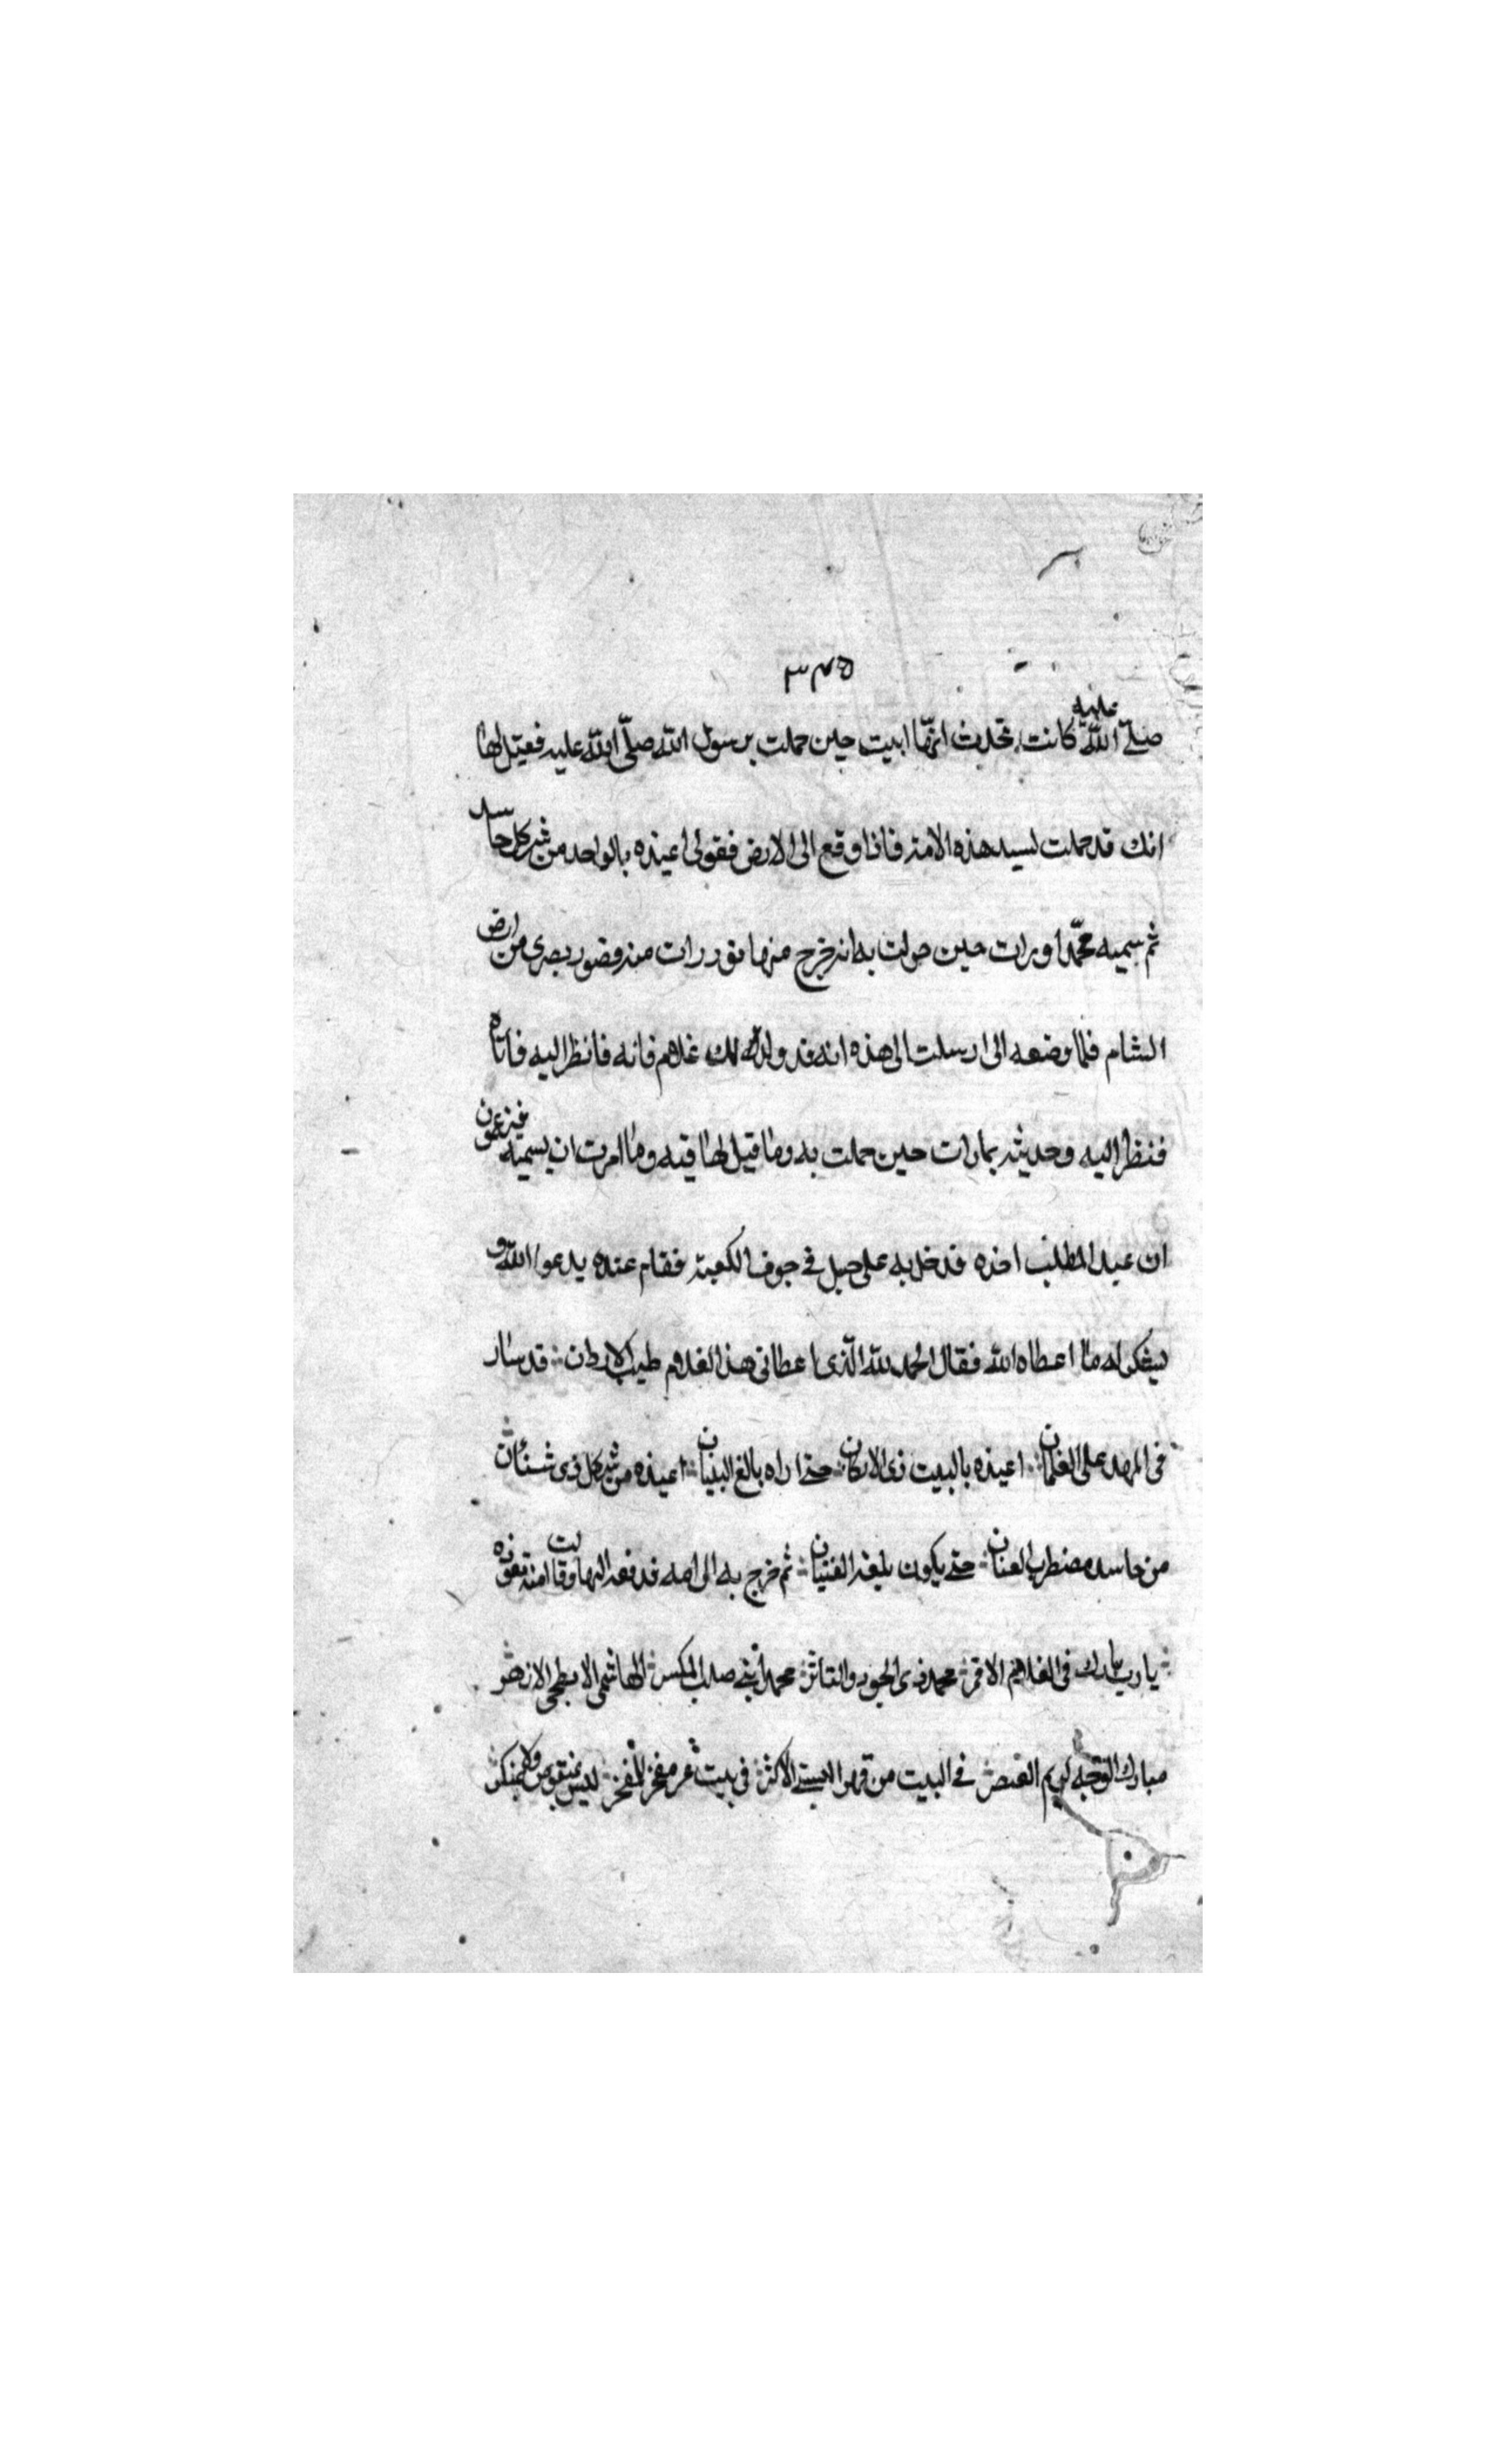 ٣٣٥
صلى الله عليه كانت تحدث انها اتيت حين حملت برسول الله صلى الله عليه فقيل لها
انك قد حملت لسيد هذه الامة فاذا وقع الى الارض فقولى اعيذه بالواحد من شر كل حاسد
ثم سميه محمدا ورات حين حملت به انه خرج منها نور رات منه قصور بصرى من ارض
الشام فلما وضعه الى ارسلت الى هذه انه قد ولد لك غلام فانه فانظر اليه فاتاه
فنظر اليه وحديثه بما رات حين حملت به وما قيل لها فيه وما امرت ان يسميه فيزعمون
ان عبد المطلب اخذه فدخل به على حبل فى جوف الكعبة فقام عنده يدعوا الله و
يشكر له ما اعطاه الله فقال الحمد لله الذى اعطانى هذا الغلام طيب الاردان قد سار
فى المهد على الغلمان اعيذه بالبيت ذى الاركان حتى اراه بالغ البنيان اعيذه من شر كل ذى شنئان
من حاسد مضطرب العنان حتى يكون بلغه الفتيان ثم خرج به الى امه فدفعه اليها وقالت امنة تعوذه
يا رب بارك فى الغلام الاقمر محمد ذى الجود والتاثر محمد صلب المكسر الهاشمى الابطحى الازهر
مبارك الوجه العنصر فى البيت من الاكثر فى بيت ليس بمنقوص ولا بمنكر